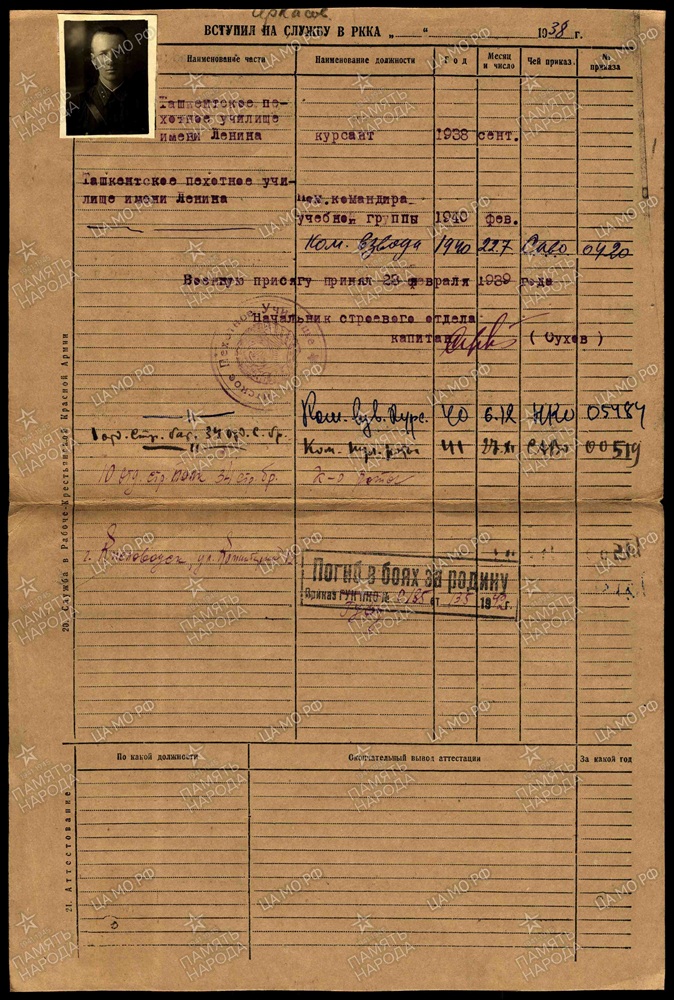 ВСТУПИЛ НА СЛУЖБУ В РККА „ “ 1938 г.
Наименование части Наименование должности Год Месяц и число Чей приказ. № приказа
Ташкентское пе-
хотное училище
имени Ленина курсант 1938 сент.
Ташкентское пехотное учи-
лище имени Ленина Пом. командира
учебной группы 1940 фев.
Ком. взвода 1940 22.7 САВО 0420
Военную присягу принял 23 февраля 1939 года
Начальник строевого отдела
капитан (Сухов)
—"— Ком. взв. курс. 40 6.12 НКО 05484
1 отд. стр. бат. 34 отд. с. бр. Ком. 41 САВО 00519
34 стр. бр. к-р роты
г. Кисловодск, ул.
Погиб в боях за родину
Приказ ГУК НКО № от 1942 г.
20. Служба в Рабоче-Крестьянской Красной Армии
По какой должности Окончательный вывод аттестации За какой год
21. Аттестование
ПАМЯТЬ НАРОДА
ЦАМО.РФ